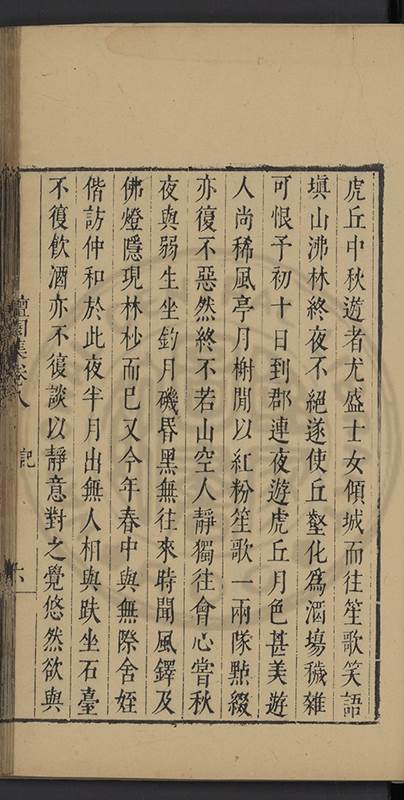 虎丘中秋遊者尤盛士女傾城而往笙歌笑語
塡山沸林終夜不絕遂使丘壑化爲酒場穢雜
可恨予初十日到郡連夜遊虎丘月色甚美遊
人尚稀風亭月榭閒以紅粉笙歌一兩隊點綴
亦復不惡然終不若山空人靜獨往會心嘗秋
夜與弱生坐釣月磯昏黑無往來時聞風鐸及
佛燈隱現林杪而已又今年春中與無際舍姪
偕訪仲和於此夜半月出無人相與趺坐石臺
不復飲酒亦不復談以靜意對之覺悠然欲與
檀園集卷八
記
六